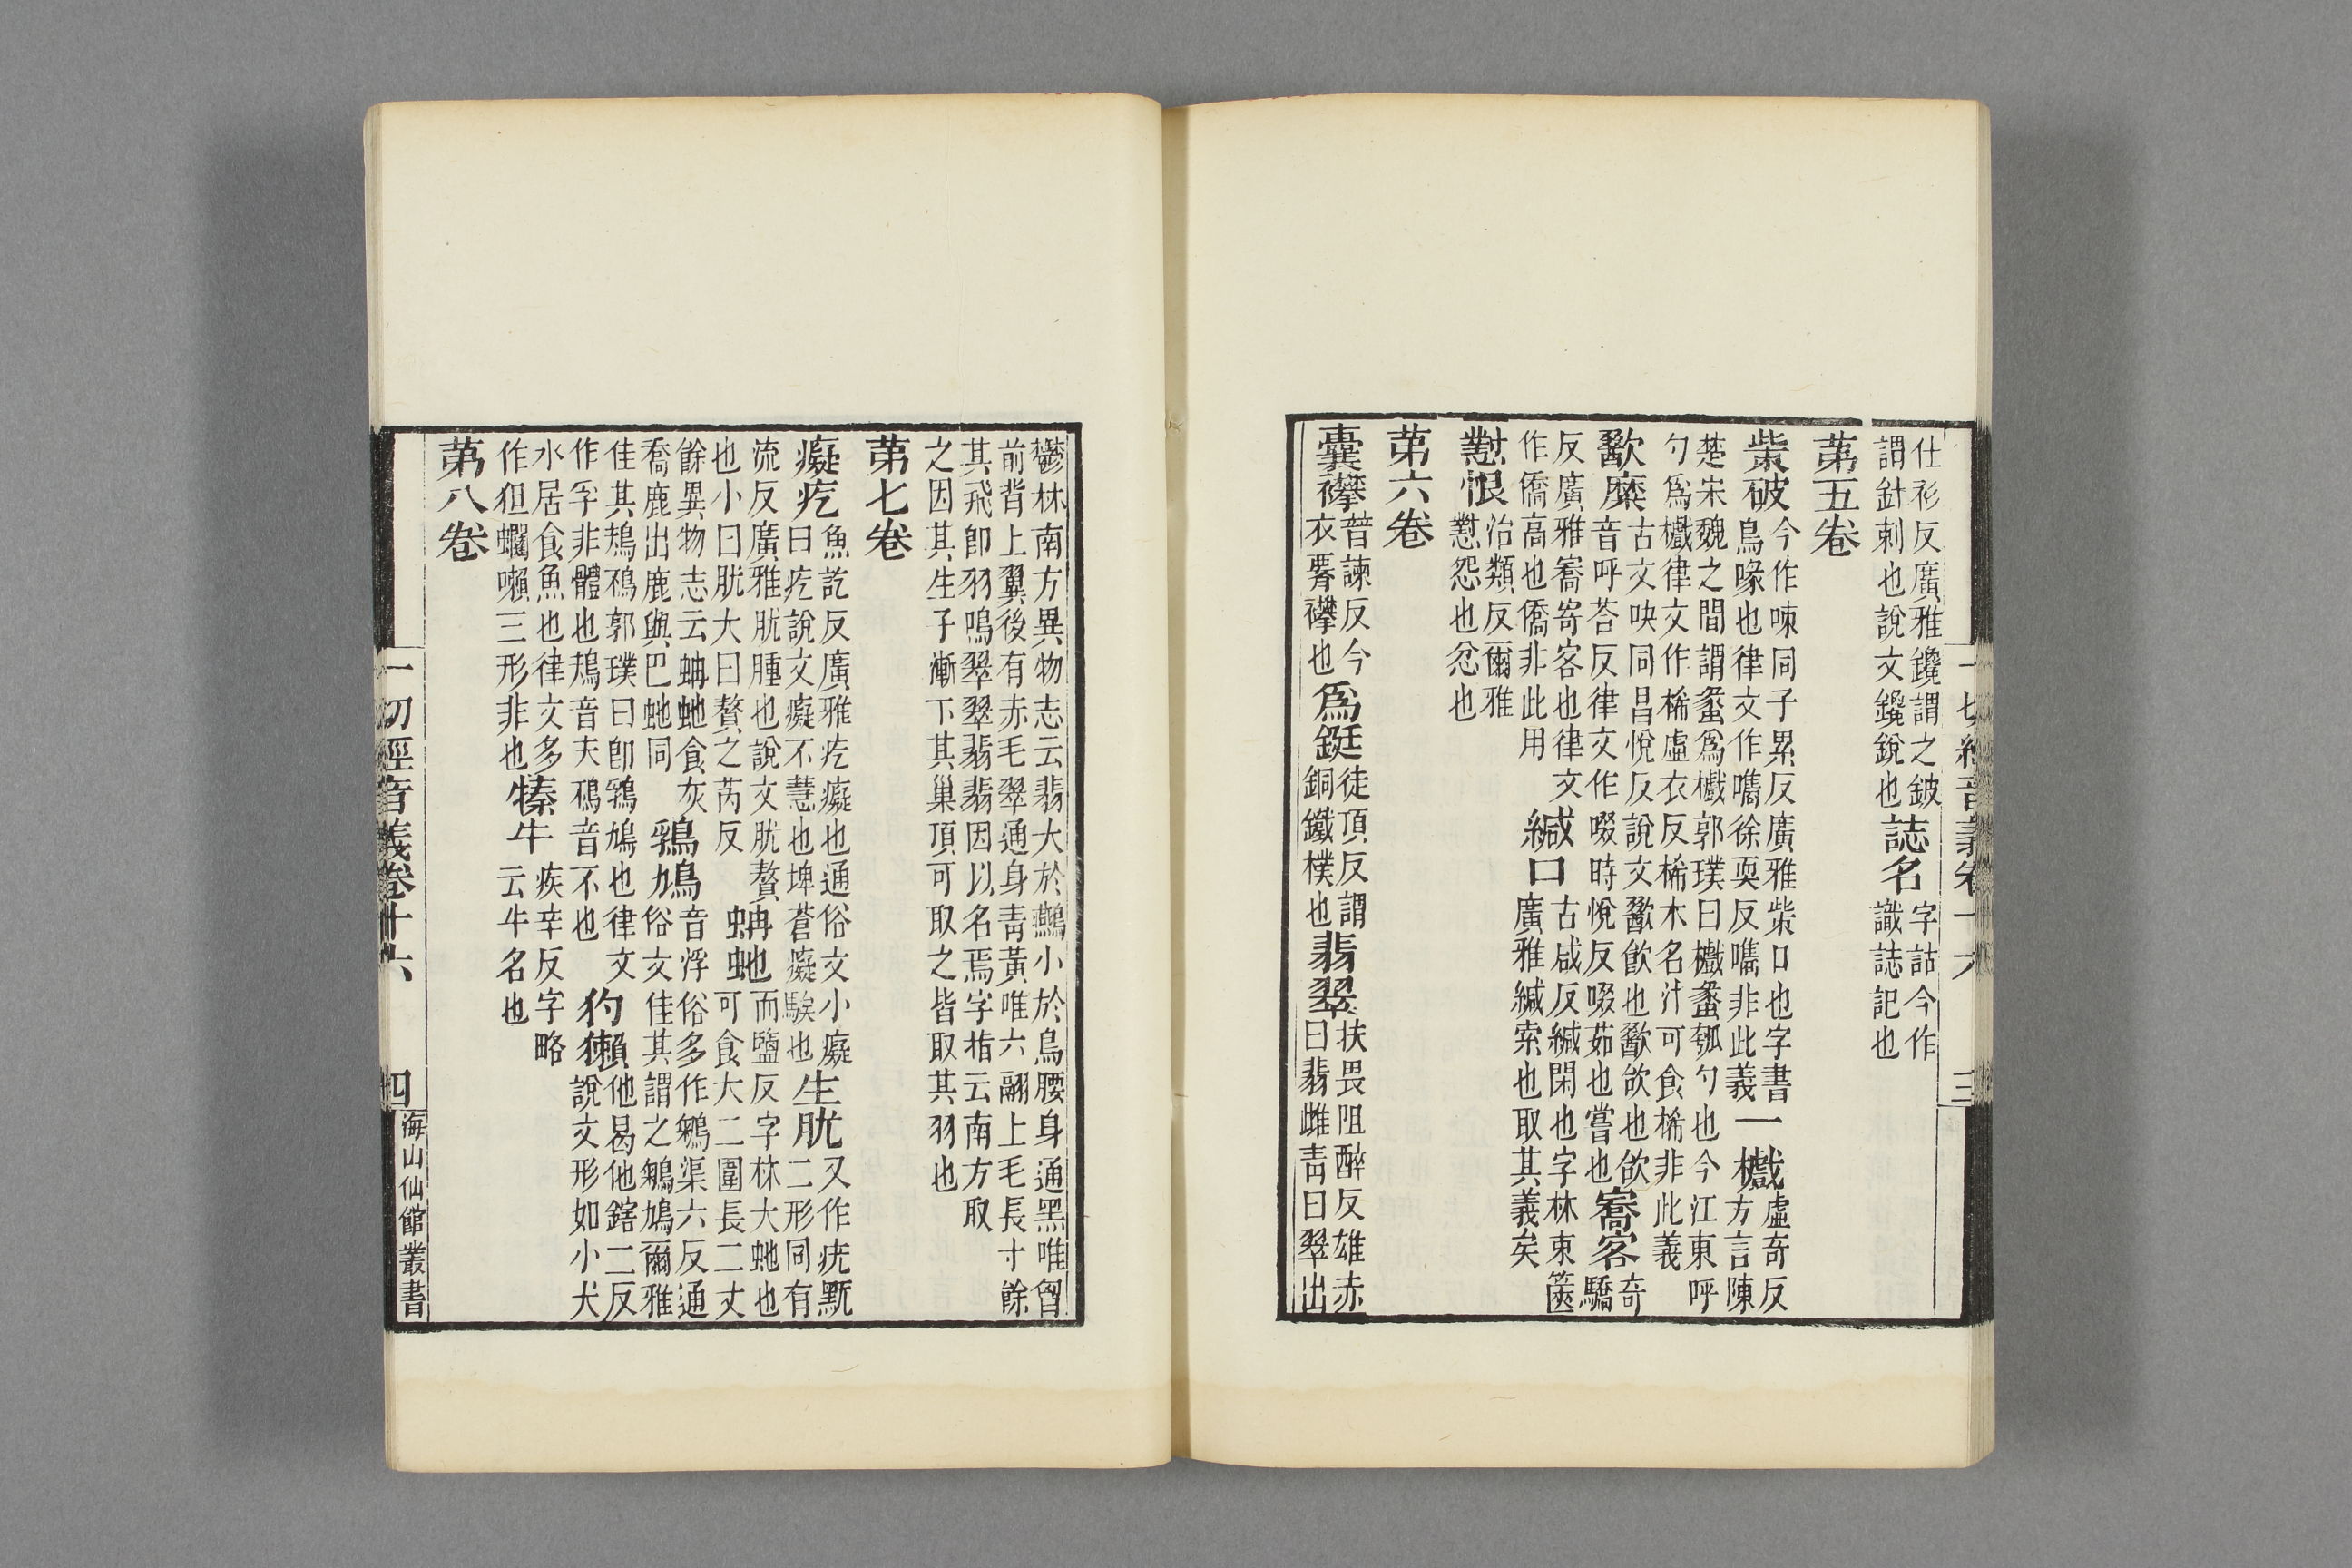 仕衫反廣雅鑱謂之鈹
謂針刺也說文鑱銳也
誌名
字詁今作
識誌記也
第五卷
柴破
今作㖩同子累反廣雅柴口也字書
鳥喙也律文作㘒徐耎反㘒非此義
一㰕
虛奇反
方言陳
楚宋魏之間謂蠡爲㰕郭璞曰㰕蠡瓠勺也今江東呼
勺爲㰕律文作桸虛衣反桸木名汁可食桸非此義
歠糜
古文吷同昌悅反說文歠飲也歠欱也欱
音呼荅反律文作啜時悅反啜茹也嘗也
寄客
奇
驕
反廣雅寄客也律文
作僑高也僑非此用
緘口
古咸反緘閑也字林束篋
廣雅緘索也取其義矣
懟恨
治類反爾雅
懟怨也忿也
第六卷
囊襻
普諫反今
衣要襻也
爲鋌
徒頂反謂
銅鐵樸也
翡翠
扶畏阻醉反雄赤
曰翡雌青曰翠出
一切經音義卷十六
三
鬱林南方異物志云翡大於鷰小於烏腰身通黑唯胷
前背上翼後有赤毛翠通身青黃唯六翮上毛長寸餘
其飛卽羽鳴翠翠翡翡因以名焉字指云南方取
之因其生子漸下其巢頂可取之皆取其羽也
第七卷
癡疙
魚訖反廣雅疙癡也通俗文小癡
曰疙說文癡不慧也埤蒼癡騃也
生肬
又作疣䵝
二形同有
流反廣雅肬腫也說文肬贅
也小曰肬大曰贅之芮反
蚺虵
而鹽反字林大虵也
可食大二圍長二丈
餘異物志云蚺虵食灰
喬鹿出鹿與巴虵同
鶉鳩
音浮俗多作鵴渠六反通
俗文佳其謂之鵴鳩爾雅
佳其鳺鴀郭璞曰卽鶉鳩也律文
作孚非體也鳺音夫鴀音不也
犳獺
他曷他鎋二反
說文形如小犬
水居食魚也律文多
作狚𧕯㘔三形非也
㯤牛
疾辛反字略
云牛名也
第八卷
一切經音義卷十六
四
海山仙館叢書